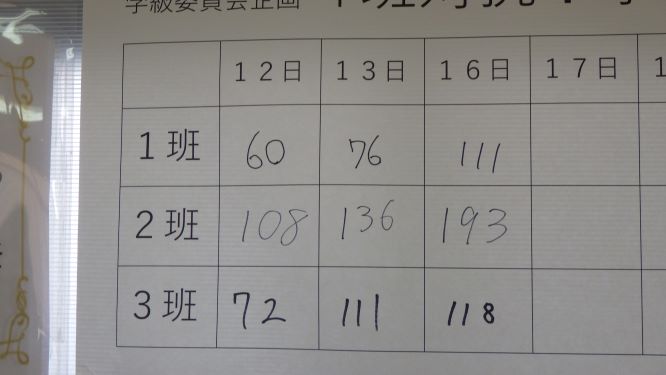 学級委員会企画
12日 13日 16日 17日 1
1班 60 76 111
2班 108 136 193
3班 72 111 118